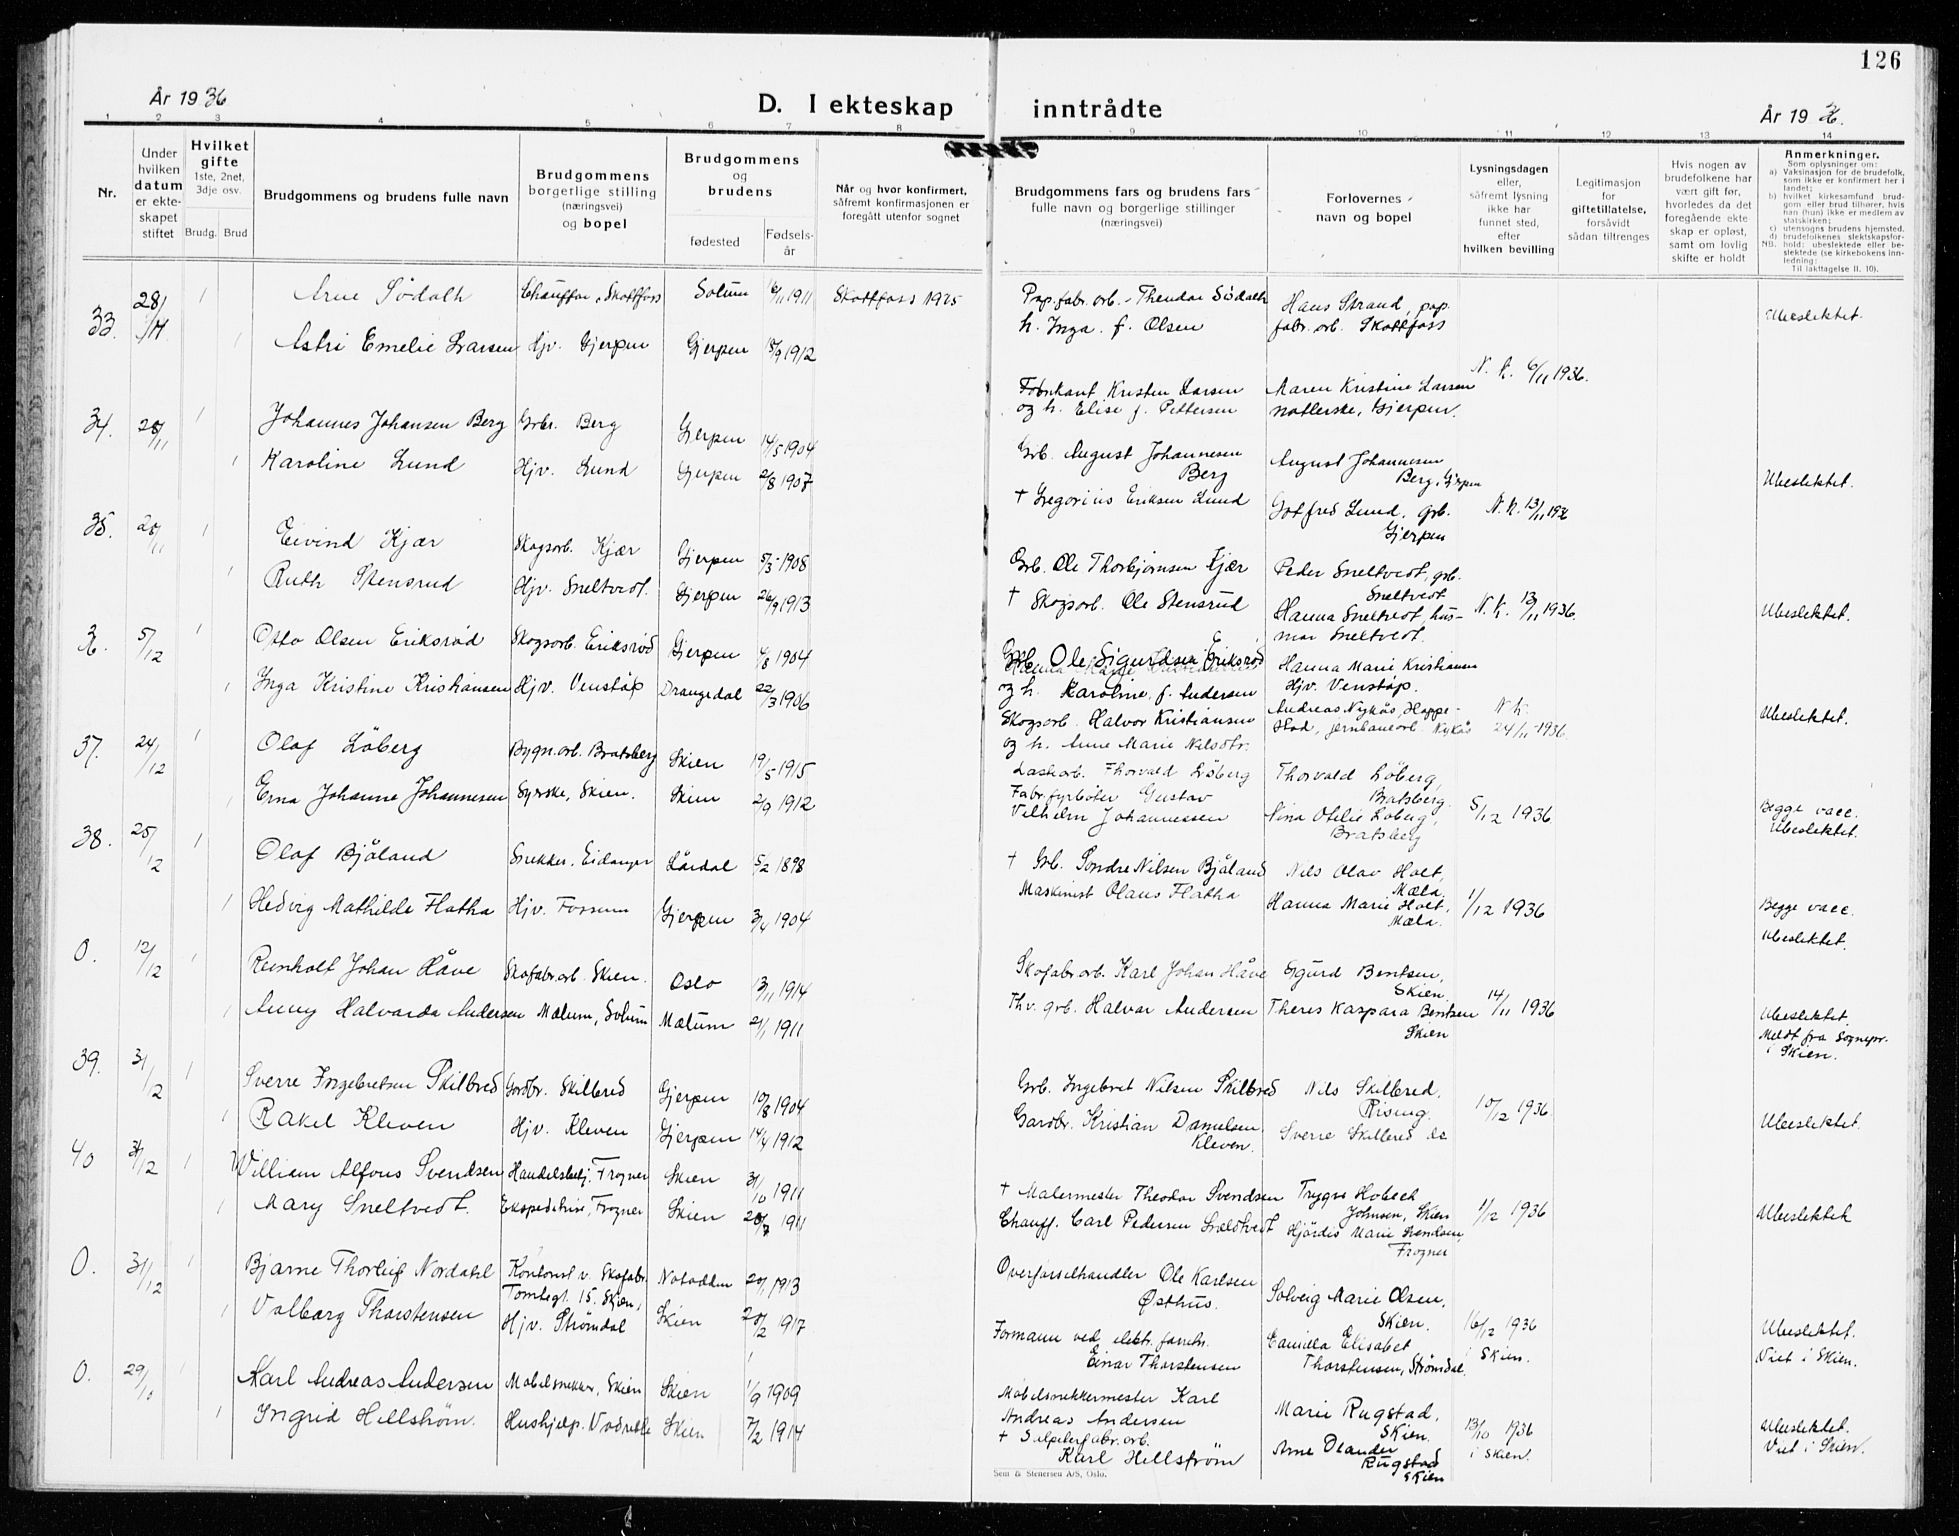 126
År 1936
D. I ekteskap inntrådte
År 1936.
1 2 3 4 5 6 7 8 9 10 11 12 13 14
Nr.
Under hvilken datum er ekte-skapet stiftet
Hvilket gifte 1ste, 2net, 3dje osv.
Brudg. Brud
Brudgommens og brudens fulle navn
Brudgommens borgerlige stilling (næringsvei) og bopel
Brudgommens og brudens
fødested
Fødsels-år
Når og hvor konfirmert, såfremt konfirmasjonen er foregått utenfor sognet
Brudgommens fars og brudens fars fulle navn og borgerlige stillinger (næringsvei)
Forlovernes navn og bopel
Lysningsdagen eller, såfremt lysning ikke har funnet sted, efter hvilken bevilling
Legitimasjon for giftetillatelse, forsåvidt sådan tiltrenges
Hvis nogen av brudefolkene har vært gift før, hvorledes da det foregående ekteskap er opløst, samt om lovlig skifte er holdt
Anmerkninger.
Som oplysninger om:
a) Vaksinasjon for de brudefolk, som ikke er konfirmert her i landet;
b) hvilket kirkesamfund brudgom eller brud tilhører, hvis han (hun) ikke er medlem av statskirken;
c) utensogns brudens hjemsted.
d) brudefolkenes slektskapsfor-
NB. hold: ubeslektede eller beslektede (se kirkebokens innledning:
Til iakttagelse II. 10).
33. 28/11 1 Arne Södalh Chauffør, Skotfoss Solum 16/11 1911 Skotfoss 1925 Pap.fabr.arb. Theodor Södalh Hans Strand, pap. Ubeslektet.
h. Inga f. Olsen fabr. arb. Skotfoss
1 Astri Emelie Larsen Hjv. Gjerpen Gjerpen 18/9 1912
N. k. 6/11 1936.
Fabrikant Kristen Larsen Maren Kristine Larsen
og h. Elise f. Pettersen Gjerpen.
34. 28/11 1 Johannes Johansen Berg Grbr. Berg Gjerpen 14/5 1904 Grb. August Johannesen Berg August Johannesen Berg, Gjerpen
1 Karoline Lund Hjv. Lund Gjerpen 2/8 1907 † Gregorius Eriksen Lund Gotfred Lund, grb. Gjerpen N. k. 13/11 1936 Ubeslektet.
35. 28/11 1 Eivind Kjær Skogsarb. Kjær Gjerpen 5/3 1908 Grb. Ole Thorbjørnsen Kjær Peder Sneltvedt, grb. Sneltvedt
1 Ruth Stensrud Hjv. Sneltvedt. Gjerpen 26/9 1913 † Skogsarb. Ole Stensrud Hanna Sneltvedt, husmor Sneltvedt. N. k. 13/11 1936. Ubeslektet.
36. 5/12 1 Otto Olsen Eriksrød Skogsarb. Eriksrød Gjerpen 6/8 1904 Grb. Ole Sigurdsen Eriksrød Hanna Marie Kristiansen
og h. Karoline, f. Andersen Hjv. Venstøp.
1 Inga Kristine Kristiansen Hjv. Venstøp Drangedal 22/3 1906 Skogsarb. Halvor Kristiansen Andreas Nykås, Hoppestad, jernbanearb. Nykås N. k. 24/11-1936. Ubeslektet.
og h. Anne Marie Nilsdtr.
37. 24/12 1 Olaf Löberg Bygn.arb. Bratsberg Skien 19/5 1915 Lastarb. Thorvald Löberg Thorvald Löberg, Bratsberg.
1 Erna Johanne Johannesen Syerske, Skien. Skien 2/9 1912 Fabr.fyrböter Gustav Vilhelm Johannessen Nina Otelie Löberg, Bratsberg 5/12 1936 Begge vacc. Ubeslektet.
38. 25/12 1 Olaf Bjåland Snekker, Eidanger Lårdal 5/2 1898 † Grb. Sondre Nilsen Bjåland Nils Olav Holt, Mæla.
1 Hedvig Mathilde Flatha Hjv. Fossum Gjerpen 3/4 1904 Maskinist Olaus Flatha Hanna Marie Holt, Mæla. 1/12 1936 Begge vacc. Ubeslektet.
0. 12/12 1 Reinholt Johan Håve Skofabr.arb. Skien. Oslo 13/11 1914 Skofabr.arb. Karl Johan Håve Sigurd Bentsen, Skien.
1 Anny Halvarda Andersen Mælum, Solum Mælum 21/1 1911 Thv. grb. Halvar Andersen Theres Kaspara Bentsen Skien 14/11 1936 Ubeslektet. Meldt fra Sognepr. i Skien.
39. 31/12 1 Sverre Ingebretsen Skilbred Gardbr. Skilbred Gjerpen 10/8 1904 Grb. Ingebret Nilsen Skilbred Nils Skilbred, Rising.
1 Rakel Kleven Hjv. Kleven Gjerpen 14/4 1912 Gardbr. Kristian Danielsen Kleven. Sverre Skilbred do 10/12 1936 Ubeslektet.
40 31/12 1 William Alfons Svendsen Handelsbetj. Frogner Skien 31/10 1911 † Malermester Theodor Svendsen Trygve Hobæch Johnsen, Skien
1 Mary Sneltvedt. Ekspeditrise, Frogner Skien 28/7 1911 Chauff. Carl Pedersen Sneltvedt Hjördis Marie Svendsen, Frogner 1/12 1936 Ubeslektet
0. 31/12 1 Bjarne Thorleif Nordahl Kontorist v. Skofabr. Tomtegt. 15. Skien, Notodden 20/1 1913 Overforselhandler Ole Karlsen Østhus. Solveig Marie Olsen, Skien.
1 Valborg Thorstensen Hjv. Strømdal Skien 20/2 1917 Formann ved elektr. forretn. Einar Thorstensen Camilla Elisabet Thorstensen, Strømdal 16/12 1936 i Skien. Ubeslektet. Viet i Skien.
0. 29/10 1 Karl Andreas Andersen Møbelsnekker, Skien Skien 1/9 1909 Møbelsnekkermester Karl Andreas Andersen Marie Rugstad, Skien.
1 Ingrid Hellström. Hushjelp. Vadrette Skien 7/2 1914 † Salpeterfabr.arb. Karl Hellström Arne Olander Rugstad Skien 13/10 1936 i Skien. Ubeslektet. Viet i Skien.
Sem & Stenersen A/S, Oslo.